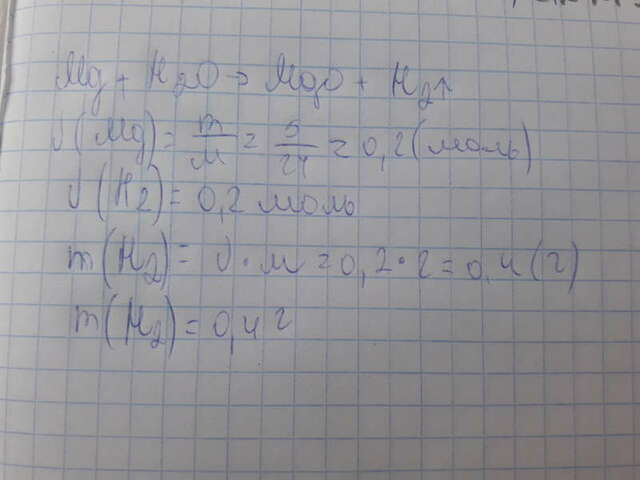 Mg + H2O → MgO + H2↑
ν(Mg) = m/M = 5/24 = 0,2 (моль)
ν(H2) = 0,2 моль
m(H2) = ν · M = 0,2 · 2 = 0,4 (г)
m(H2) = 0,4 г